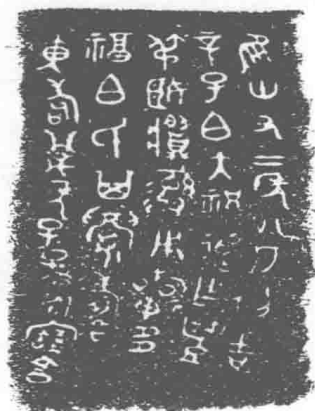 隹卅又二年八月初吉
辛巳白大祝追乍豐
叔姬䵼彝用旂多
福白氏其眉壽
黃耇萬年子子孫孫永寶享